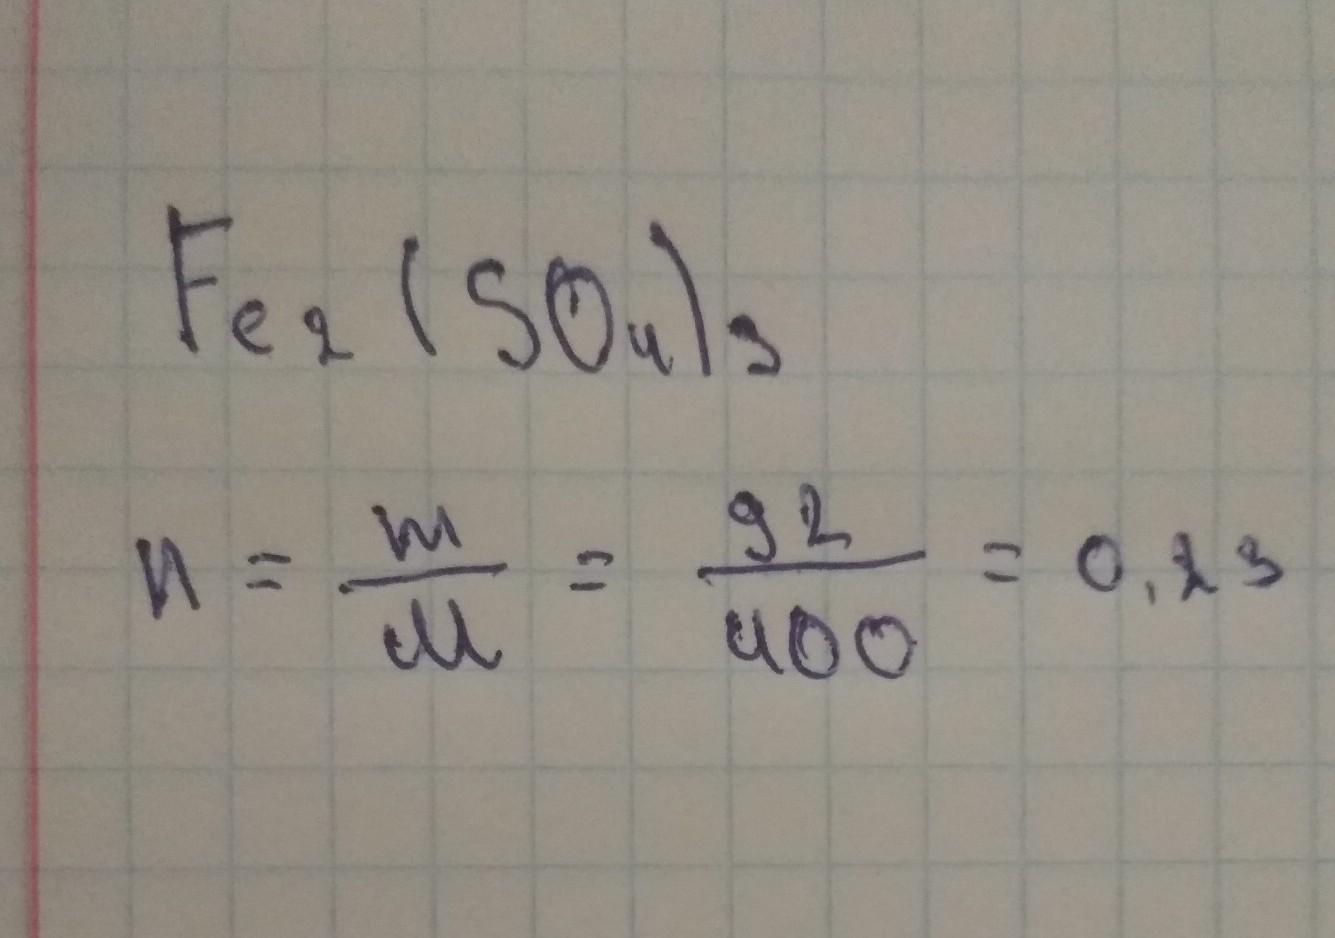 Fe₂(SO₄)₃
n = m/M = 92/400 = 0,23